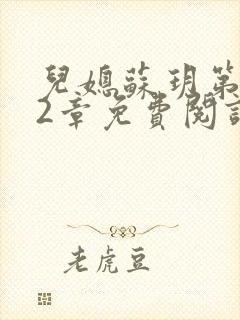 兒媳蘇玥第
2章免費閱讀
老虎豆